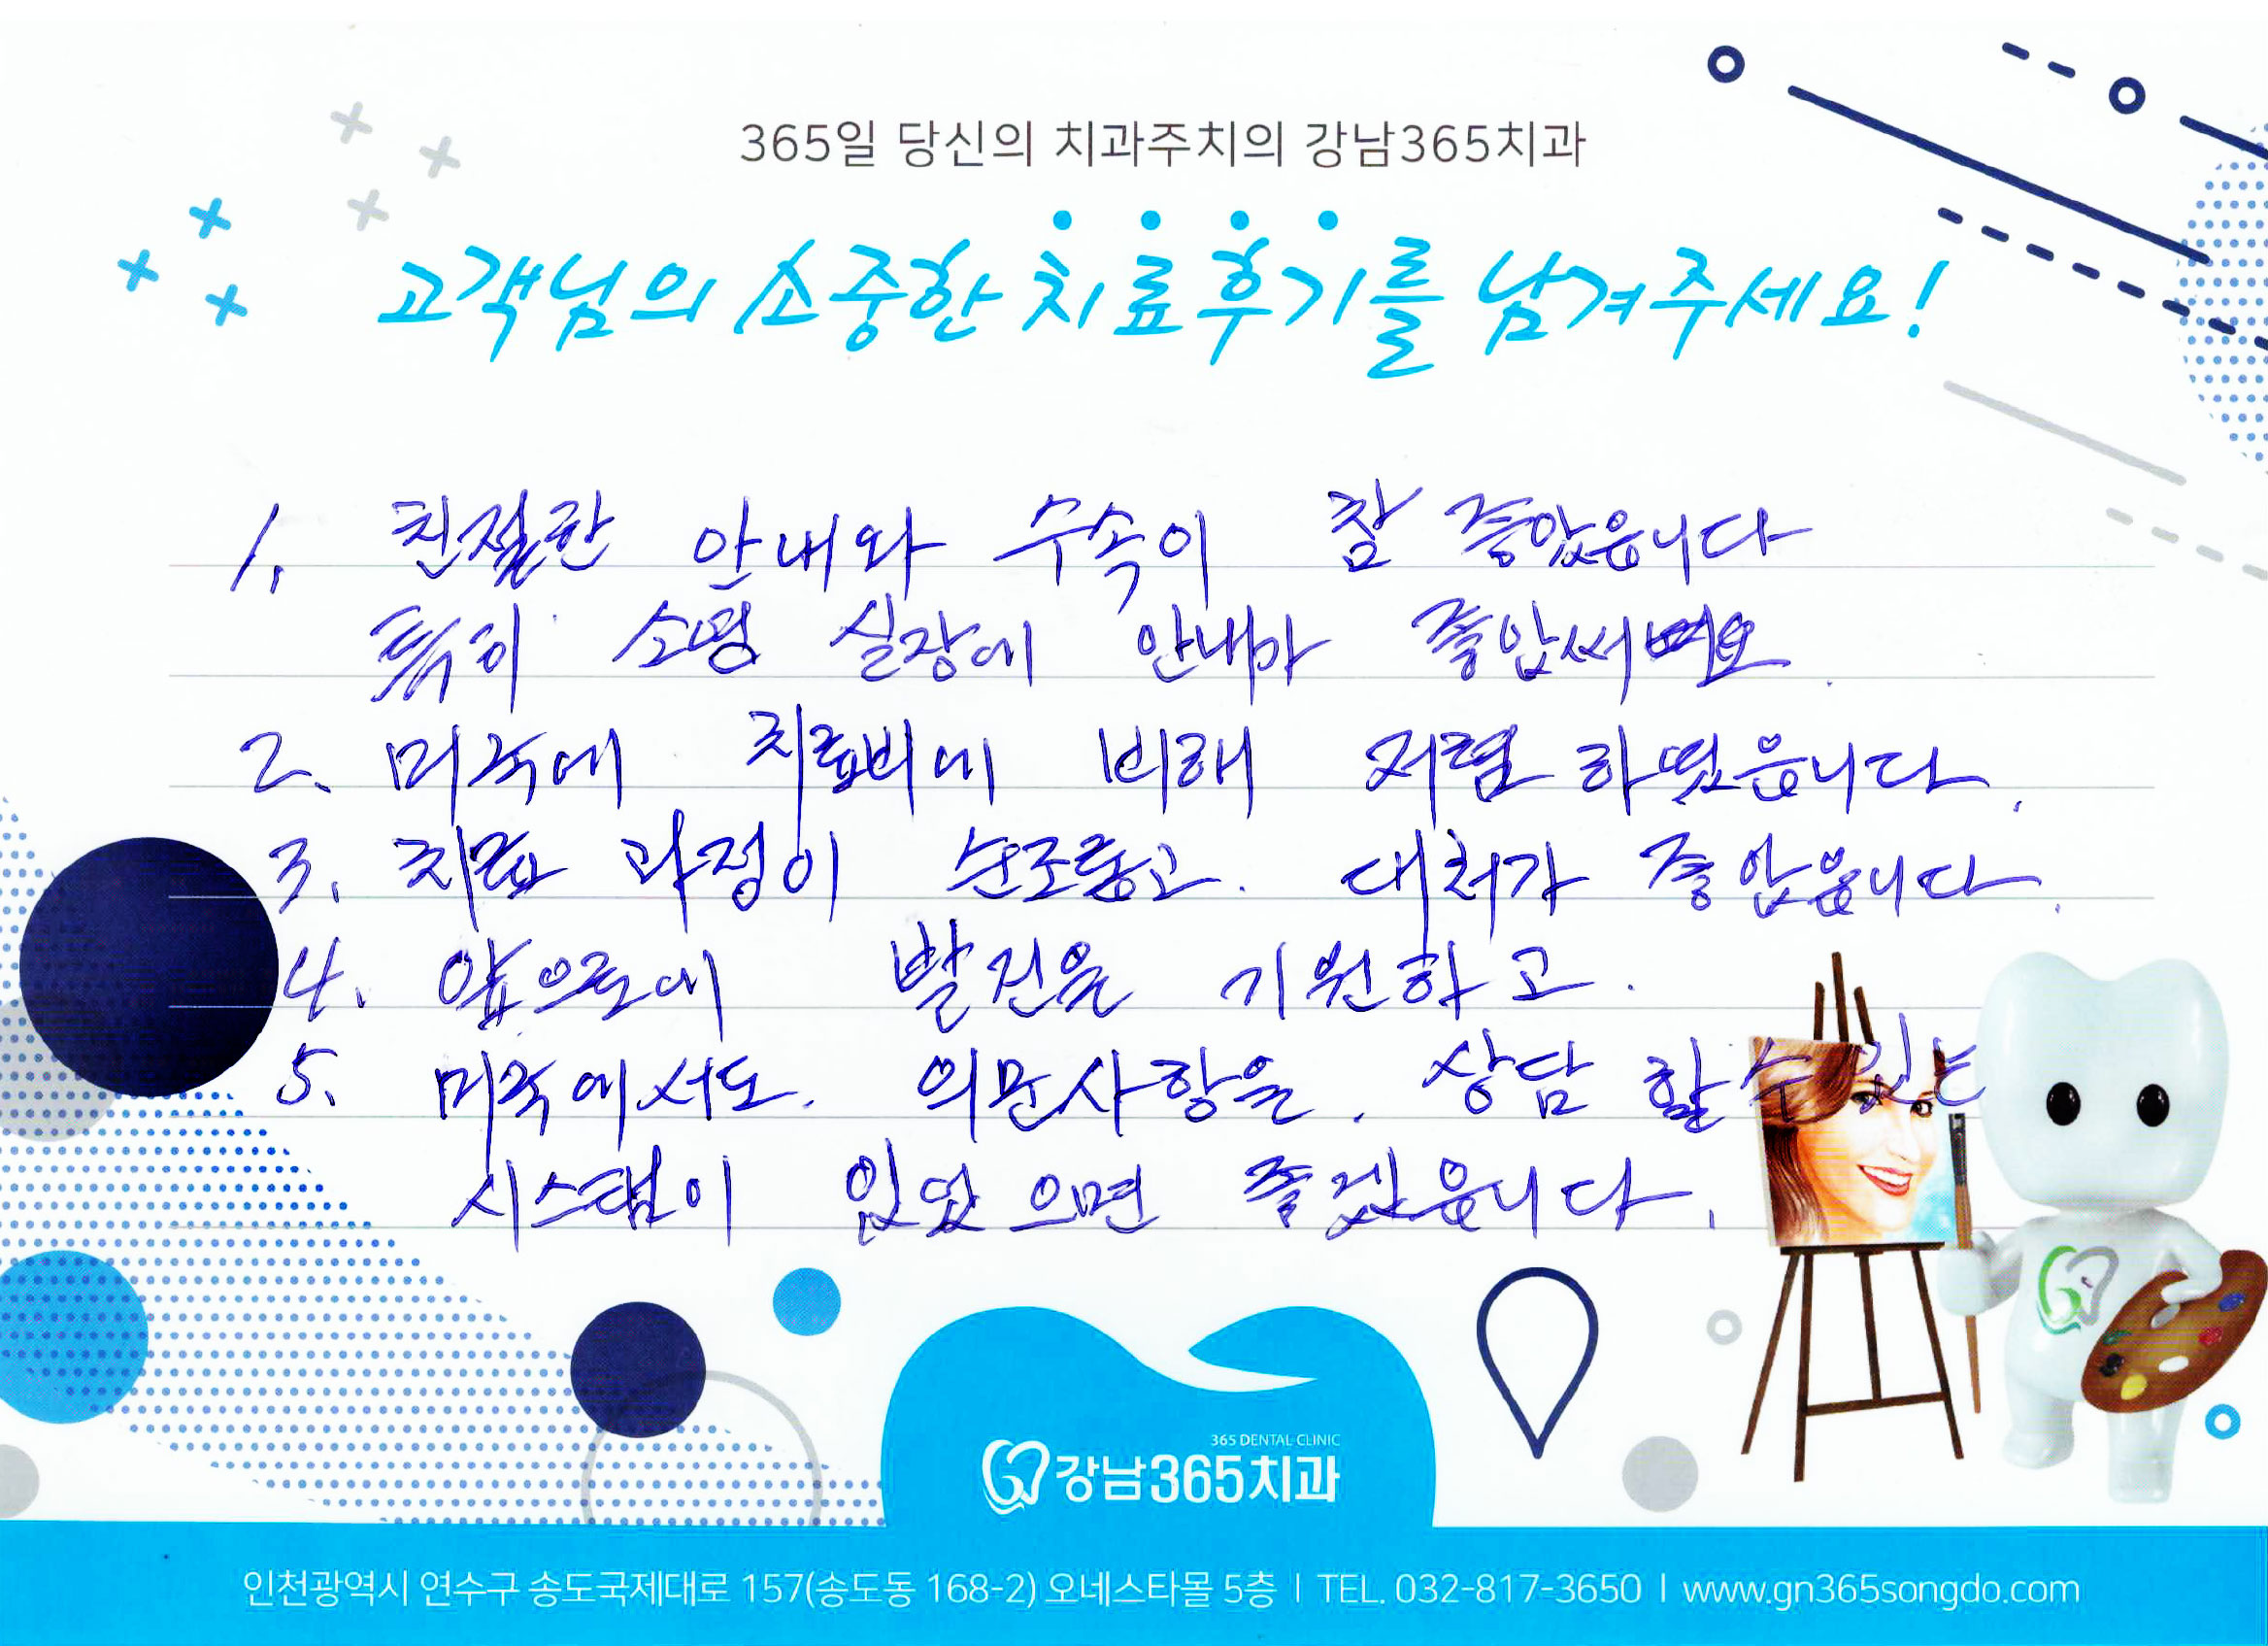 365일 당신의 치과주치의 강남365치과
고객님의 소중한 치료후기를 남겨주세요!
1. 친절한 안내와 수속이 참 좋았읍니다
특히 소영 실장에 안내가
2. 미국에 치료비에 비해 저렴 하였읍니다.
3. 치료 과정이 순조롭고. 대처가 좋았읍니다.
4. 앞으로에 발전을 기원하고.
5. 미국에서도. 의문사항을. 상담 할 수 있는
시스템이 있었으면 좋겠읍니다.
365 DENTAL CLINIC
강남365치과
인천광역시 연수구 송도국제대로 157(송도동 168-2) 오네스타몰 5층 | TEL. 032-817-3650 | www.gn365songdo.com